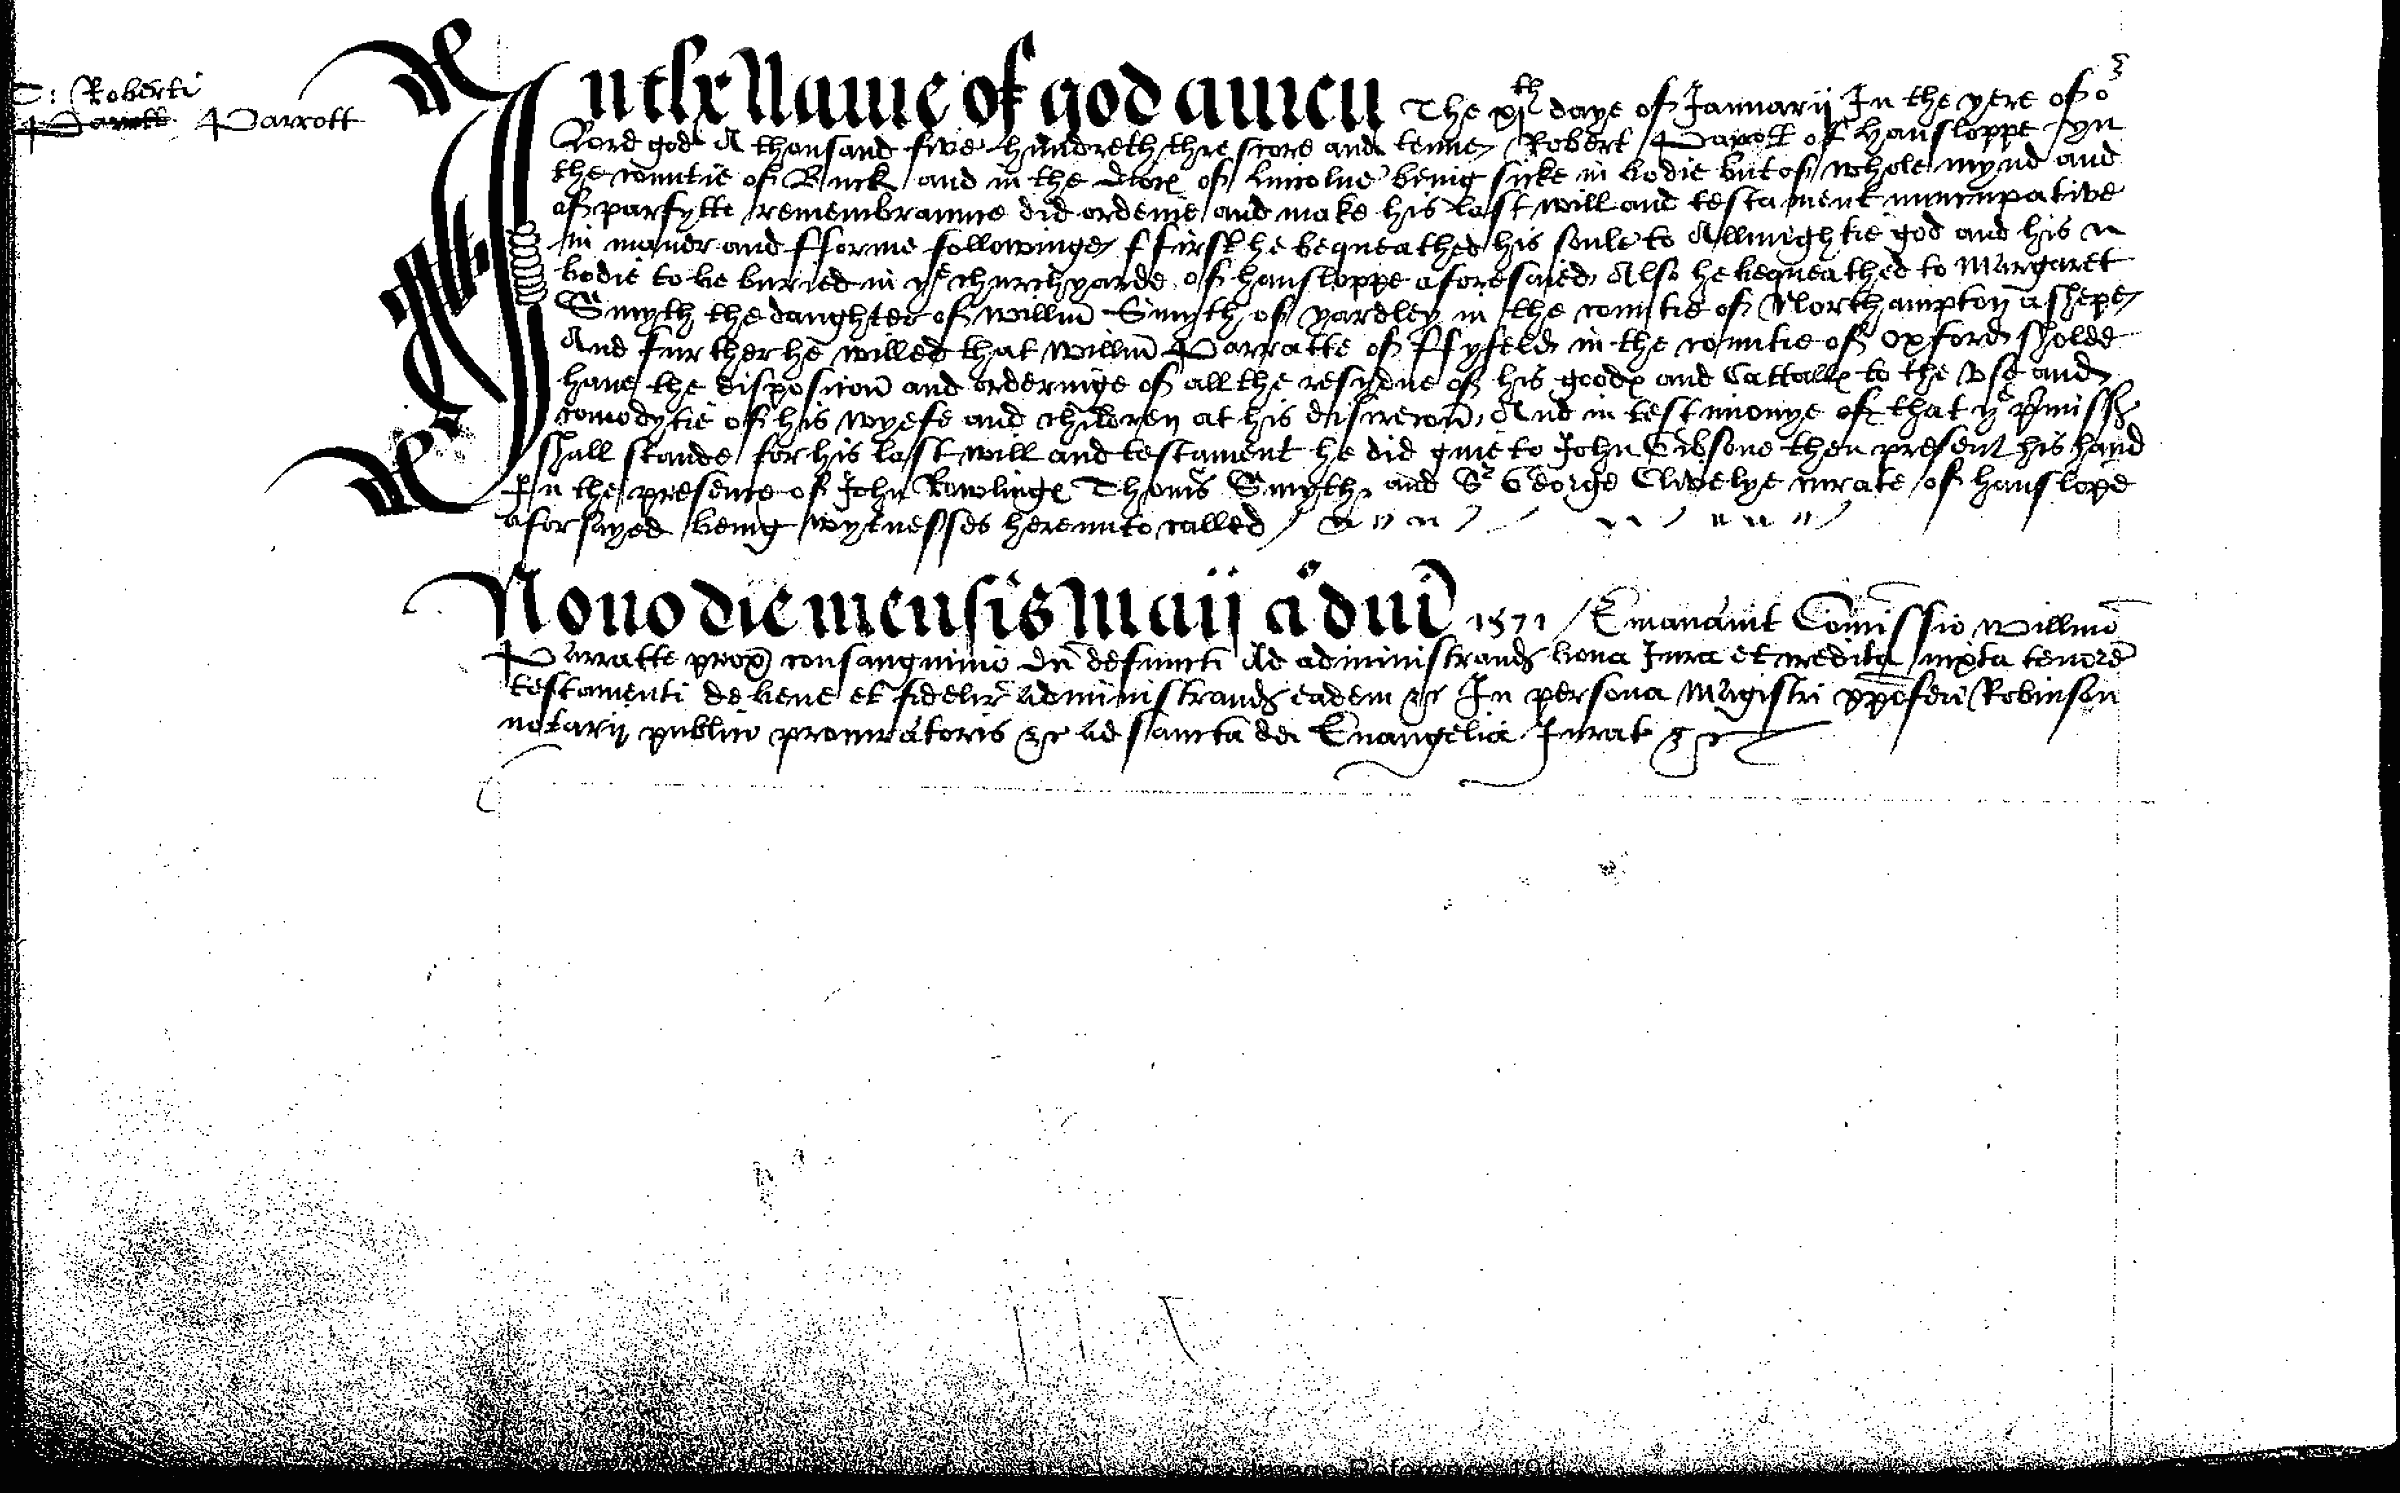 T: Roberti
Parrott Parrott
In the Name of god amen The xjth daye of Januarij In the yere of or
Lord god A thousand five hundreth thre score and tenne Robert Parrott of Hansloppe Iyn
the countie of Buck and in the dioces of Lincolne being sicke in bodie but of whole mynd and
of parfytte remembraunce did ordeine and make his last will and testament nuncupative
in maner and fforme followinge ffirst he bequeathed his soule to Allmightie god and his
bodie to be buried in ye churchyarde of hansloppe aforesaied Also he bequeathed to Margaret
Smyth the daughter of Willm Smyth of yardley in the countie of Northampton a shepe
And further he willed that Willm Parratte of ffyfeld in the countie of Oxford sholde
haue the disposicon and orderinge of all the resydue of his goodes and Cattalles to the vse and
comodytie of his wyefe and children at his discrecon, And in testimonye of that ye pmisses
shall stande for his last will and testament he did giue to John Gibsone then present his hand
In the presence of John Rowlinge Thoms Smyth and Sr George Clivelye curate of hanslope
aforsayed being wytnesses hereunto called
Nono die mensis Maij ao dni 1571 Emanauit Comissio Willmo
Parratte prox consanguineo dn defuncti Ad administrand bona Jura et credita iuxta tenore
testamenti de bene et fidelr administrand eadem &c In persona Magistri xpoferi Robinson
notarij publici procuratoris &c Ad sancta dei Euangelia Jurat &c